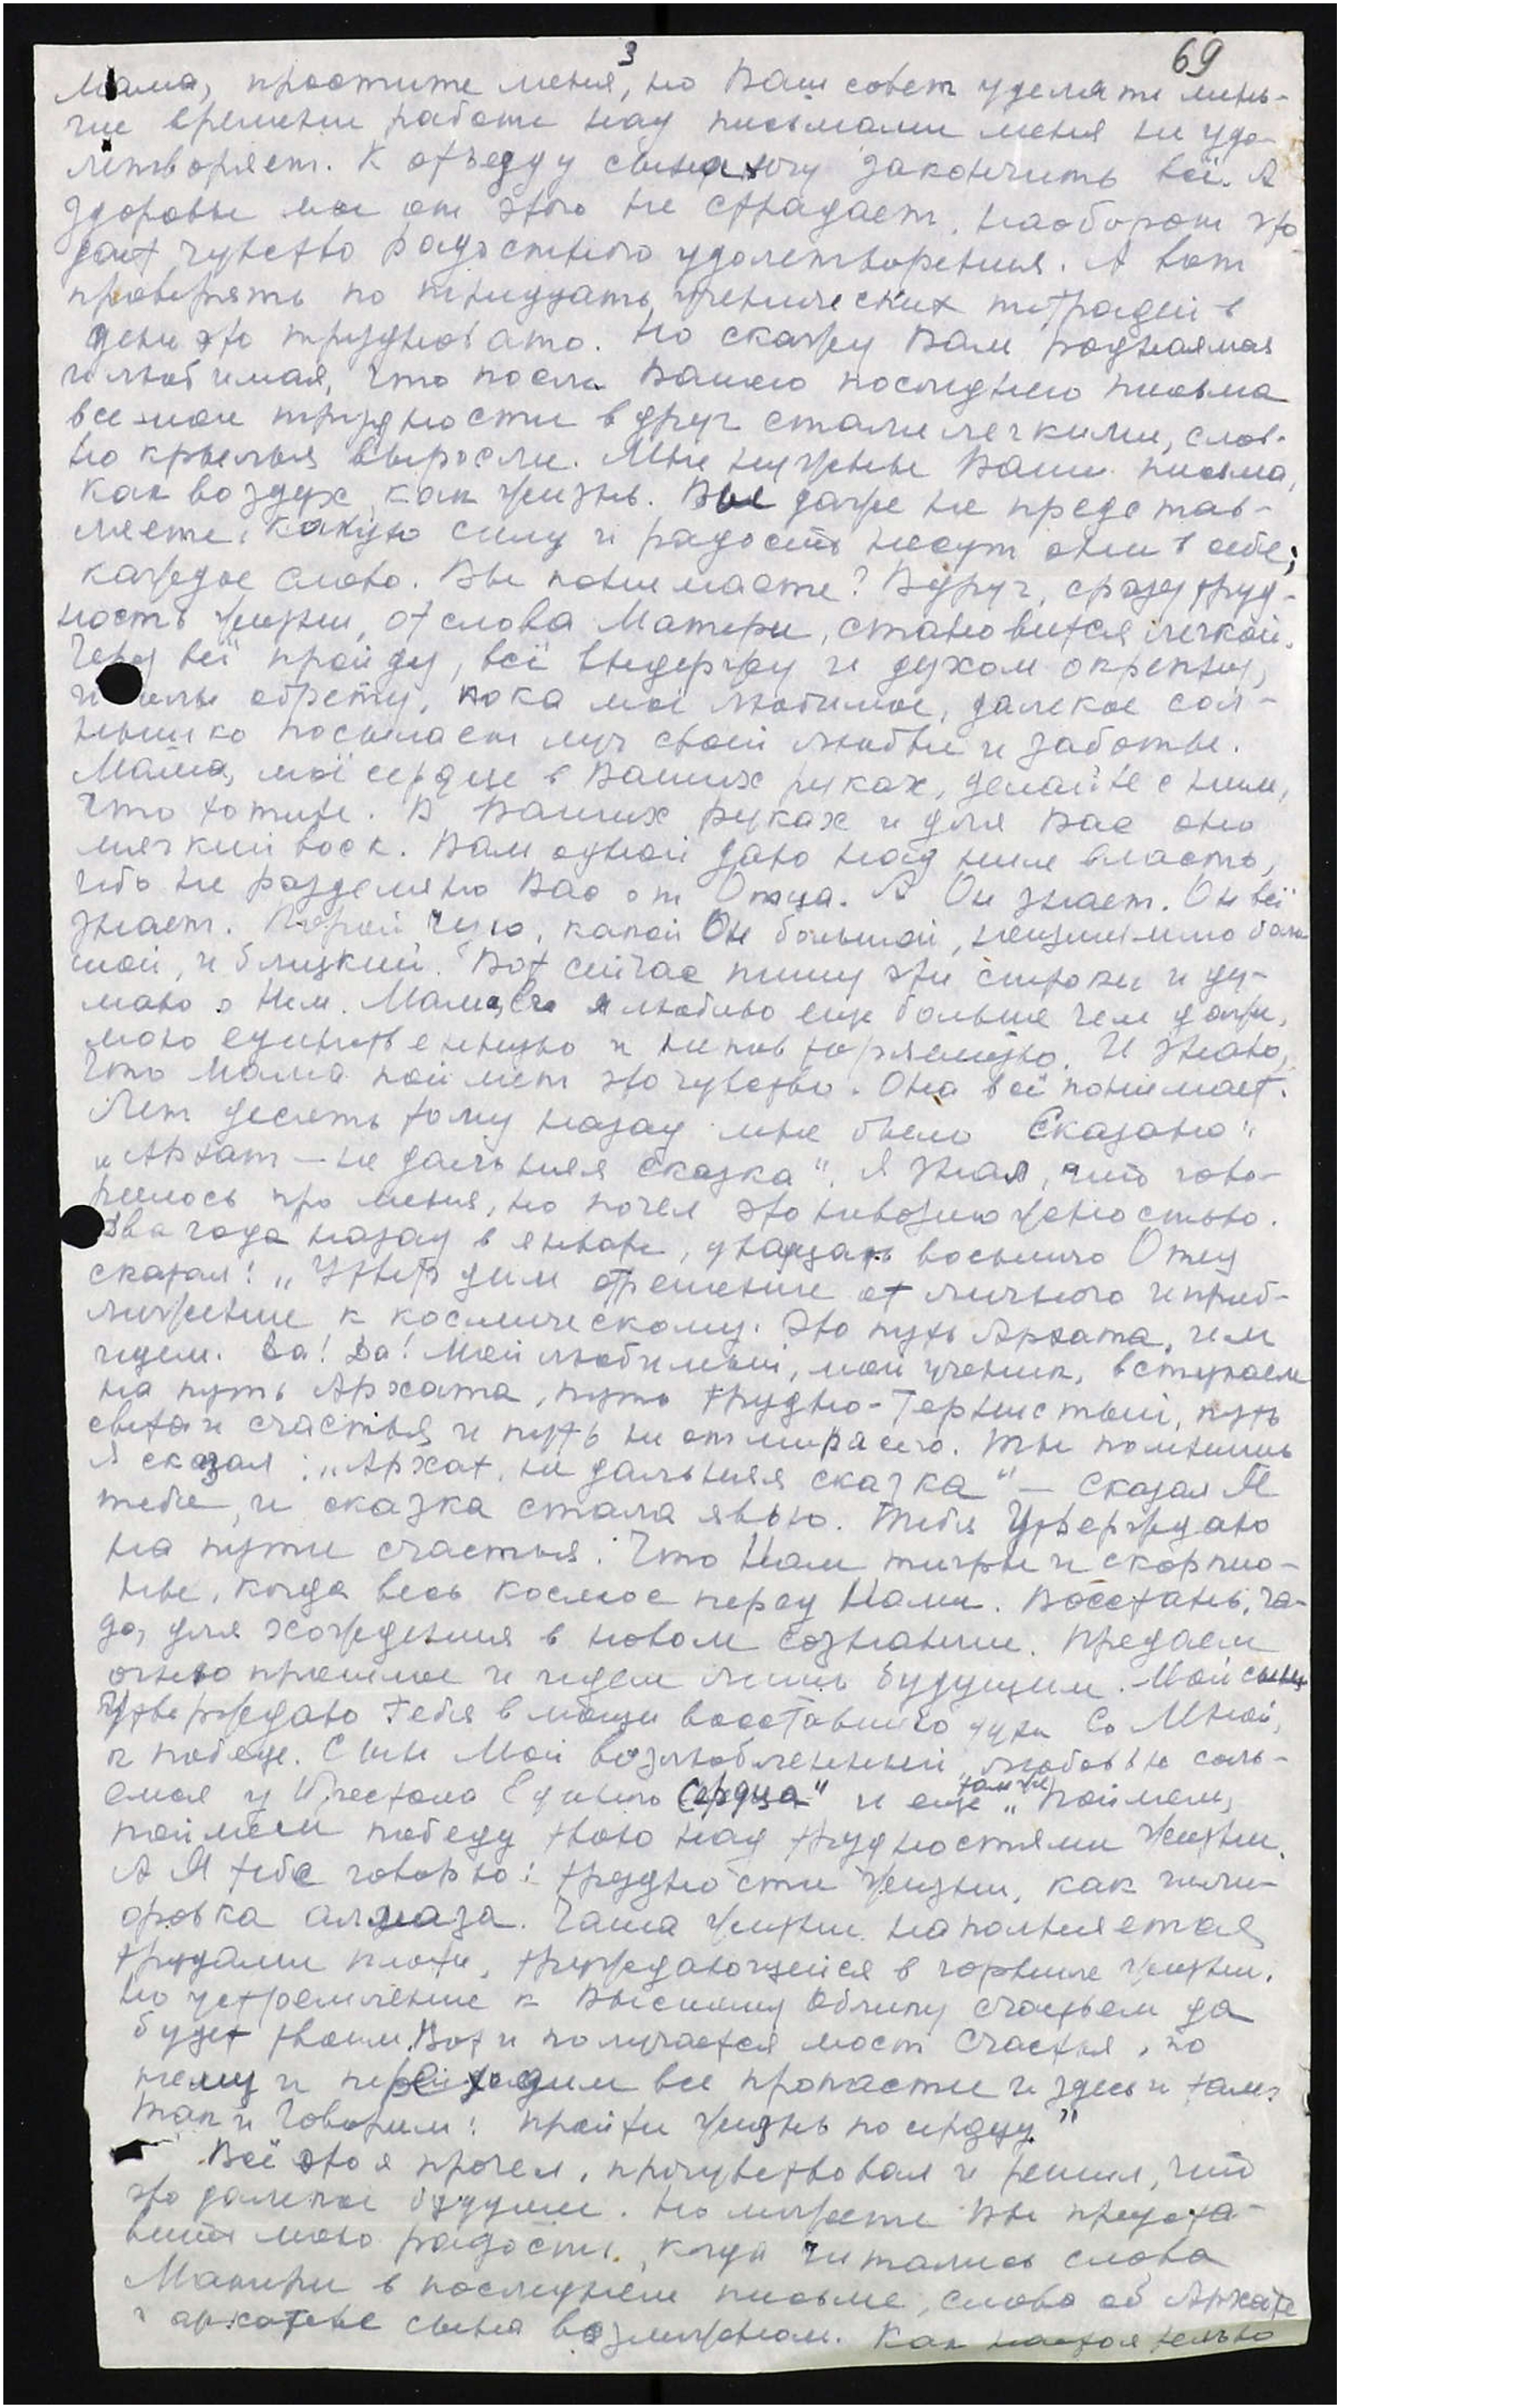 3
69
Мама, простите меня, но Ваш совет уделять мень-
ше времени работе над письмами меня не удо-
летворяет. К отъезду сына хочу закончить всё. А
здоровье мое от этого не страдает, наоборот это
дает чувство радостного удолетворения. А вот
проверять по тридцать ученических тетрадей в
день это трудновато. Но скажу Вам родная моя
и любимая, что после Вашего последнего письма
все мои трудности вдруг стали легкими, слов-
но крылья выросли. Мне нужны Ваши письма,
как воздух, как жизнь. Вы даже не представ-
ляете, какую силу и радость несут они в себе;
каждое слово. Вы понимаете? Вдруг, сразу труд-
ность жизни, от слова Матери, становится легкой.
Через всё пройду, всё выдержу и духом окрепну,
и силы обрету, пока моё любимое, далекое сол-
нышко посылает луч своей любви и заботы.
Мама, моё сердце в Ваших руках, делайте с ним,
что хотите. В Ваших руках и для Вас оно
мягкий воск. Вам одной дано над ним власть,
ибо не разделяю Вас от Отца. А Он знает. Он всё
знает. Порой чую, какой Он большой, неизменно боль
шой, и близкий. Вот сейчас пишу эти строки и ду-
маю о Нем. Мама, Его я люблю еще больше чем даже,
мою единственную и неповторяемую. И знаю,
что Мама поймет это чувство. Она всё понимает.
Лет десять тому назад мне было Сказано:
„Архат — не дальняя сказка". Я знал, что гово-
рилось про меня, но почел это невозможностью.
Два года назад в январе, двадцать восьмого Отец
сказал: „Утвердим отрешение от личного и приб-
лижение к космическому. Это путь Архата, им
идем. Да! Да! Мой любимый, мой ученик, вступаем
на путь Архата, путь трудно-тернистый, путь
света и счастья и путь не от мира сего. Ты помнишь
Я сказал: „Архат, не дальняя сказка" — сказал Я
тебе, и сказка стала явью. Тебя Утверждаю
на пути счастья. Что Нам тигры и скорпио-
ны, когда весь космос перед Нами. Восстань, ча-
до, для хождения в новом сознании. Предаем
огню прошлое и идем лишь будущим. Мой сын
Утверждаю Тебя в мощи восставшего духа Со Мной,
к победе. Сын Мой возлюбленный, любовью соль-
емся у Престола Единого Сердца" и еще там же „Поймем,
поймем победу твою над трудностями жизни.
А Я тебе говорю: трудности жизни, как шли-
фовка алмаза. Чаша жизни наполняется
трудами плоти, труждающейся в горниле жизни.
Но устремление к Высшему Облику счастьем да
будет твоим. Вот и получается мост счастья, по
нему и переходим все пропасти и здесь и там.
Так и Говорим: пройти жизнь по сердцу."
Всё это я прочел, прочувствовал и решил, что
это далекое будущее. Но можете Вы предста-
вить мою радость, когда читались слова
Матери в последнем письме, слова об Архате
архатстве сына возможном. Как настоятельно